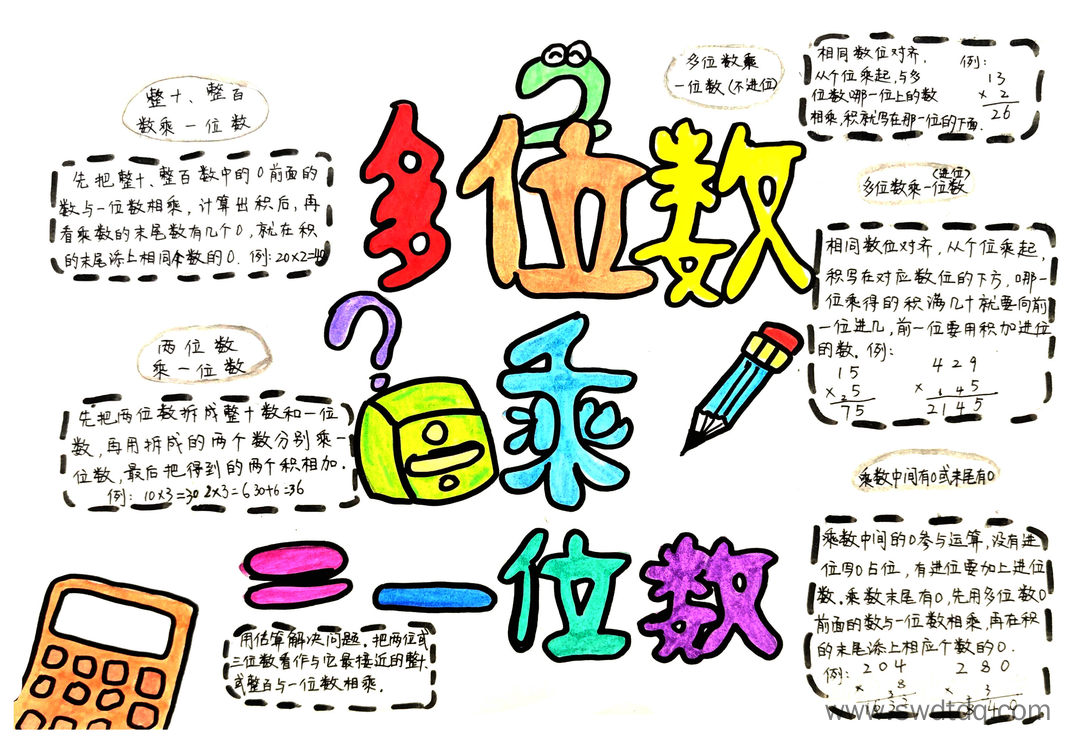 多位数
乘
一位数
整十、整百
数乘一位数
先把整十、整百数中的0前面的
数与一位数相乘，计算出积后，再
看乘数的末尾数有几个0，就在积
的末尾添上相同个数的0. 例：20×2=40
两位数
乘一位数
先把两位数拆成整十数和一位
数，再用拆成的两个数分别乘一
位数，最后把得到的两个积相加.
例：10×3=30 2×3=6 30+6=36
用估算解决问题，把两位或
三位数看作与它最接近的整十
或整百与一位数相乘。
多位数乘
一位数(不进位)
相同数位对齐，
从个位乘起，与多
位数哪一位上的数
相乘，积就写在那一位的下面.
例：
13
× 2
26
(进位)
多位数乘一位数
相同数位对齐，从个位乘起，
积写在对应数位的下方，哪一
位乘得的积满几十就要向前
一位进几，前一位要用积加进位
的数. 例：
15
×₂5
75
429
× ₁ ₄5
2145
乘数中间有0或末尾有0
乘数中间的0参与运算，没有进
位写0占位，有进位要加上进位
数. 乘数末尾有0，先用多位数0
前面的数与一位数相乘，再在积
的末尾添上相应个数的0.
例：
204
× 8
280
× 3
www.swdtdq.com